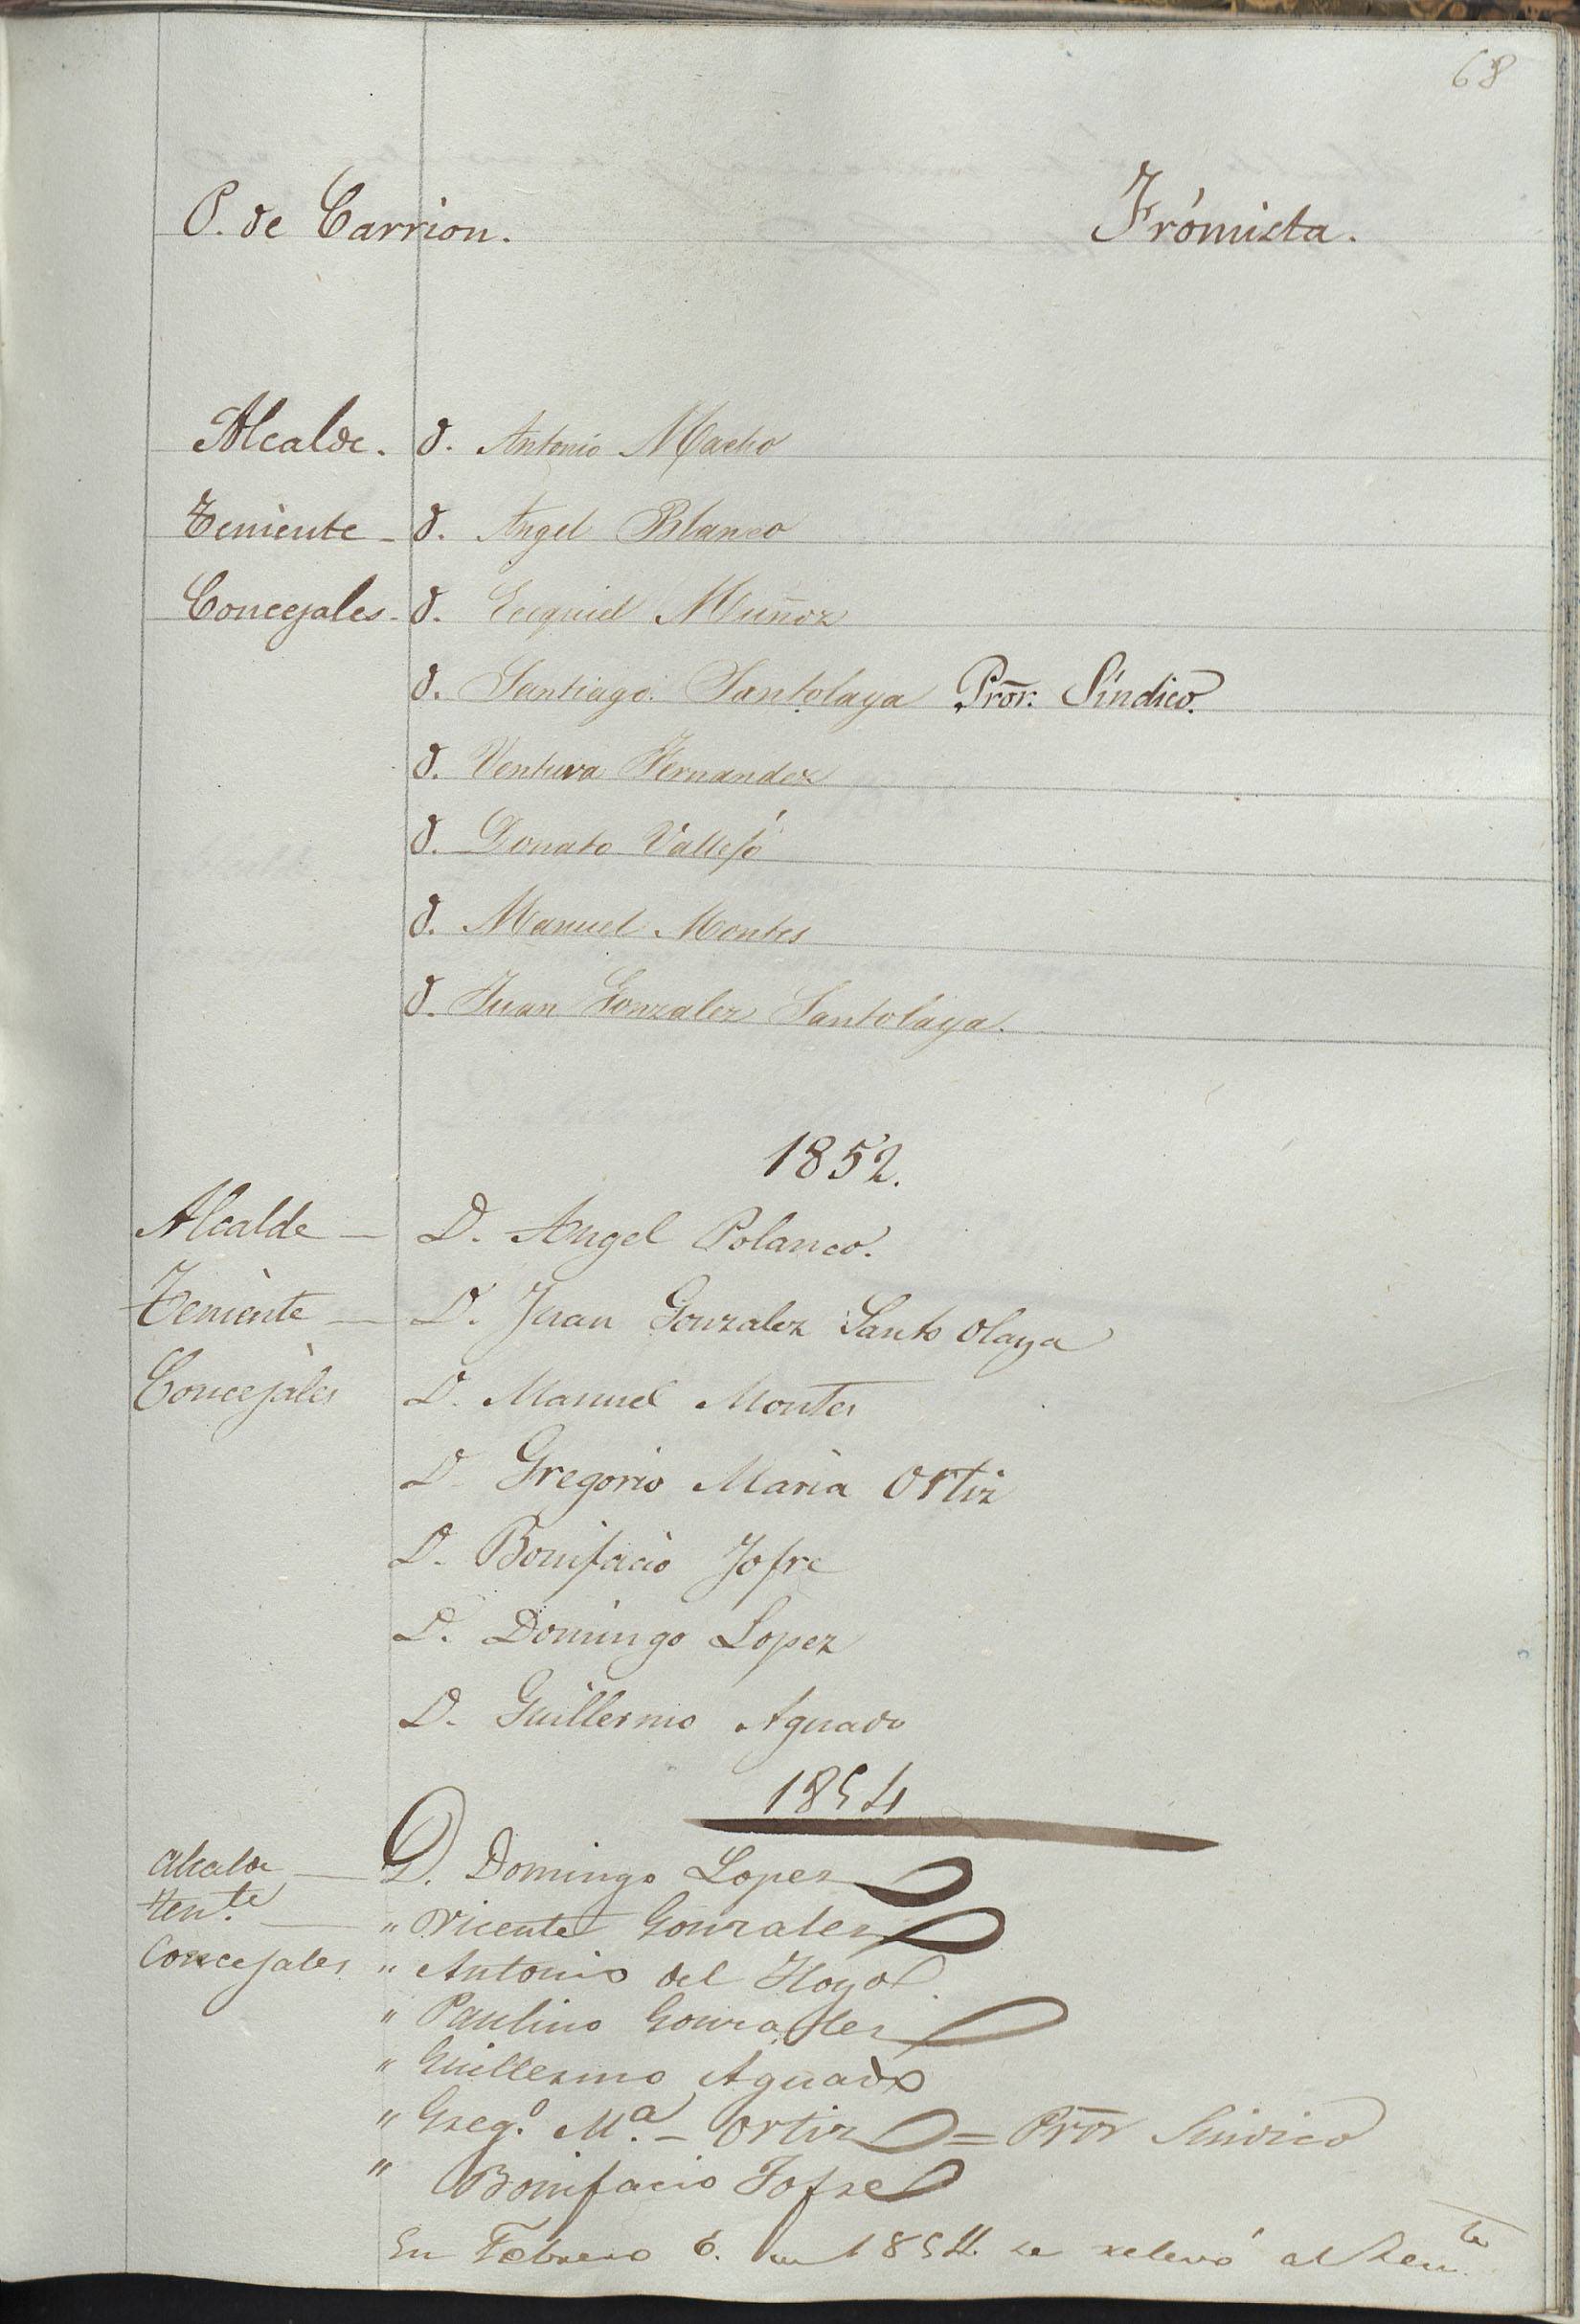 68
P. de Carrion. Frómista.
Alcalde. D. Antonio Macho
Teniente - D. Angel Blanco
Concejales - D. Ecequiel Muñoz
D. Santiago Santolaya Pror. Síndico.
D. Ventura Fernandez
D. Donato Vallejó
D. Manuel Montes
D. Juan Gonzalez Santolaya.
1852.
Alcalde — D. Angel Polanco.
Teniente — D. Juan Gonzalez Santo olaya
Concejales D. Manuel Montes
D. Gregorio Maria Ortiz
D. Bonifacio Jofre
D. Domingo Lopez
D. Guillermo Aguado
1854
Alcalde — D. Domingo Lopez
Ten.te — " Vicente Gonzalez
Concejales " Antonio del Hoyo.
" Paulino Gonzalez
" Guillermo Aguado
" Greg.o M.a - Ortiz = Pror Sindico
" Bonifacio Jofre
En Febrero 6. 1854. se relevó al Ten.te